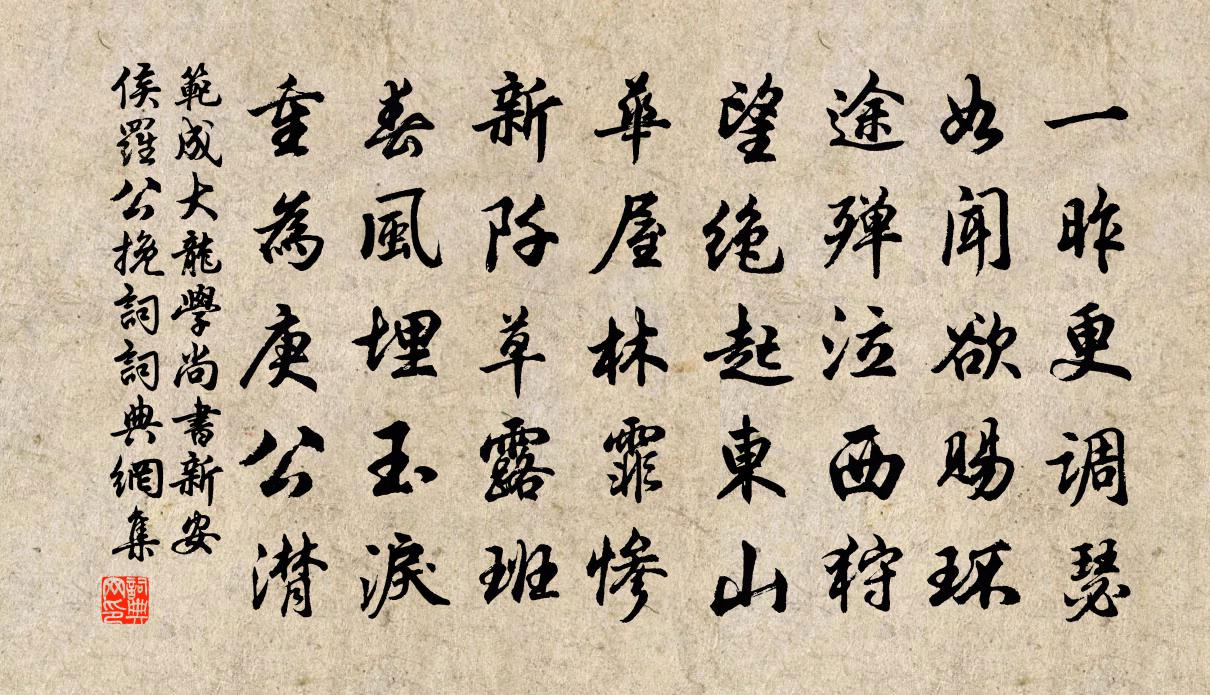 一昨更調瑟
如聞欲賜環
途殫泣西狩
望絕起東山
華屋林霏慘
新阡草露班
春風埋玉淚
重為庾公潸
範成大龍學尚書新安
侯羅公挽詞詞典網集
詞典
网印